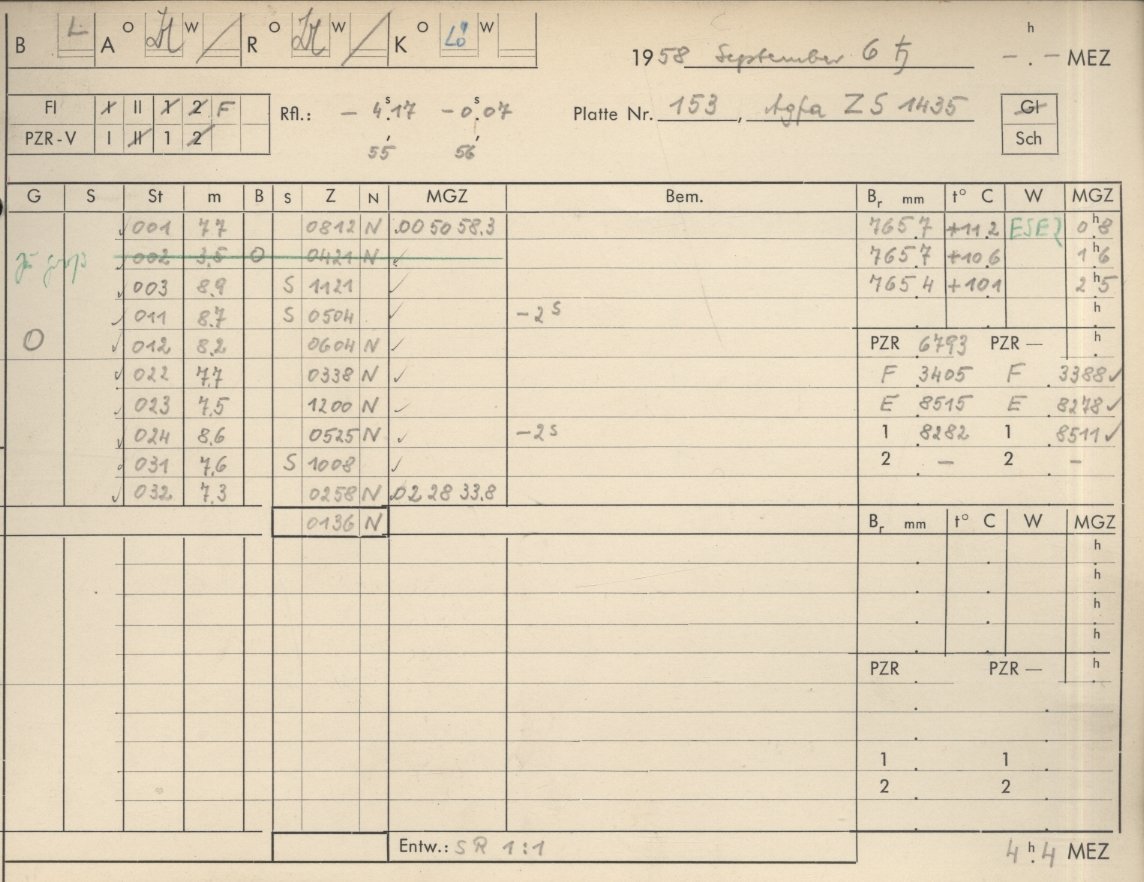 B L A O W R O W K O Lö W
1958 September 6 ♄ – h – MEZ
FI I II 1 2 F
PZR-V I II 1 2
Rfl.: – 4s.17 – 0s.07
55 56
Platte Nr. 153, Agfa ZS 1435
Gl
Sch
G S St m B S Z N MGZ Bem. Br mm t° C W MGZ
001 7.7 0812 N .005058.3 765.7 +11.2 ESE2 0h8
zu groß 002 3.5 O 0421 N ✓ 765.7 +10.6 1h6
003 8.9 S 1121 ✓ 765.4 +10.1 2h5
011 8.7 S 0504 ✓ –2s h
O 012 8.2 0604 N ✓ PZR 6793 PZR – h
022 7.7 0338 N ✓ F .3405 F .3388 ✓
023 7.5 1200 N ✓ E .8515 E .8278 ✓
024 8.6 0525 N ✓ –2s 1 .8282 1 .8511 ✓
031 7.6 S 1008 ✓ 2 – 2 –
032 7.3 0258 N .022833.8
0136 N Br mm t° C W MGZ
h
h
h
h
PZR PZR – h
1 1
2 2
Entw.: SR 1:1 4h.4 MEZ